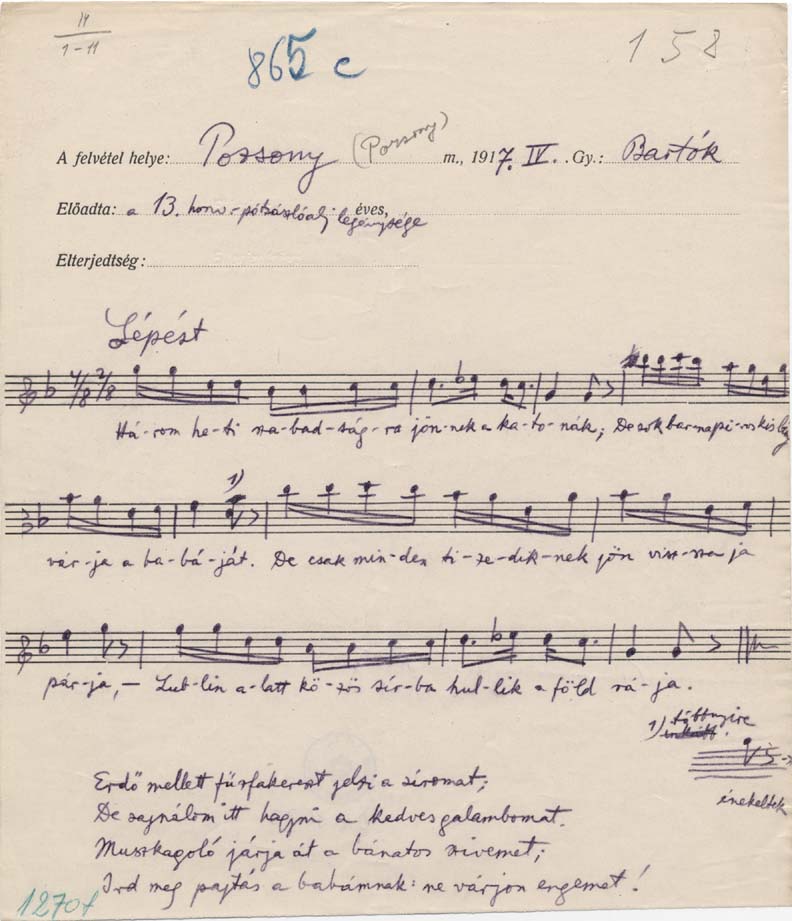 IV
1-11
865 c
158
A felvétel helye: Pozsony (Pozsony) m., 1917. IV. Gy.: Bartók
Előadta: a 13. honv-pótzászlóalj legénysége éves,
Elterjedtség:
Lépést
4/8 2/8
Há-rom he-ti sza-bad-ság-ra jön-nek a ka-to-nák; De sok barna pi-ros kis lány
1)
vár-ja a ba-bá-ját. De csak min-den ti-ze-dik-nek jön visz-sza ja
pár-ja, – Lub-lin a-latt kö-zös sír-ba hul-lik a föld rá-ja.
1) többnyire
énekelték
Erdő mellett fűzfakereszt jelzi a síromat;
De sajnálom itt hagyni a kedves galambomat.
Muszkagoló járja át a bánatos szivemet;
Ird meg pajtás a babámnak: ne várjon engemet!
1270f